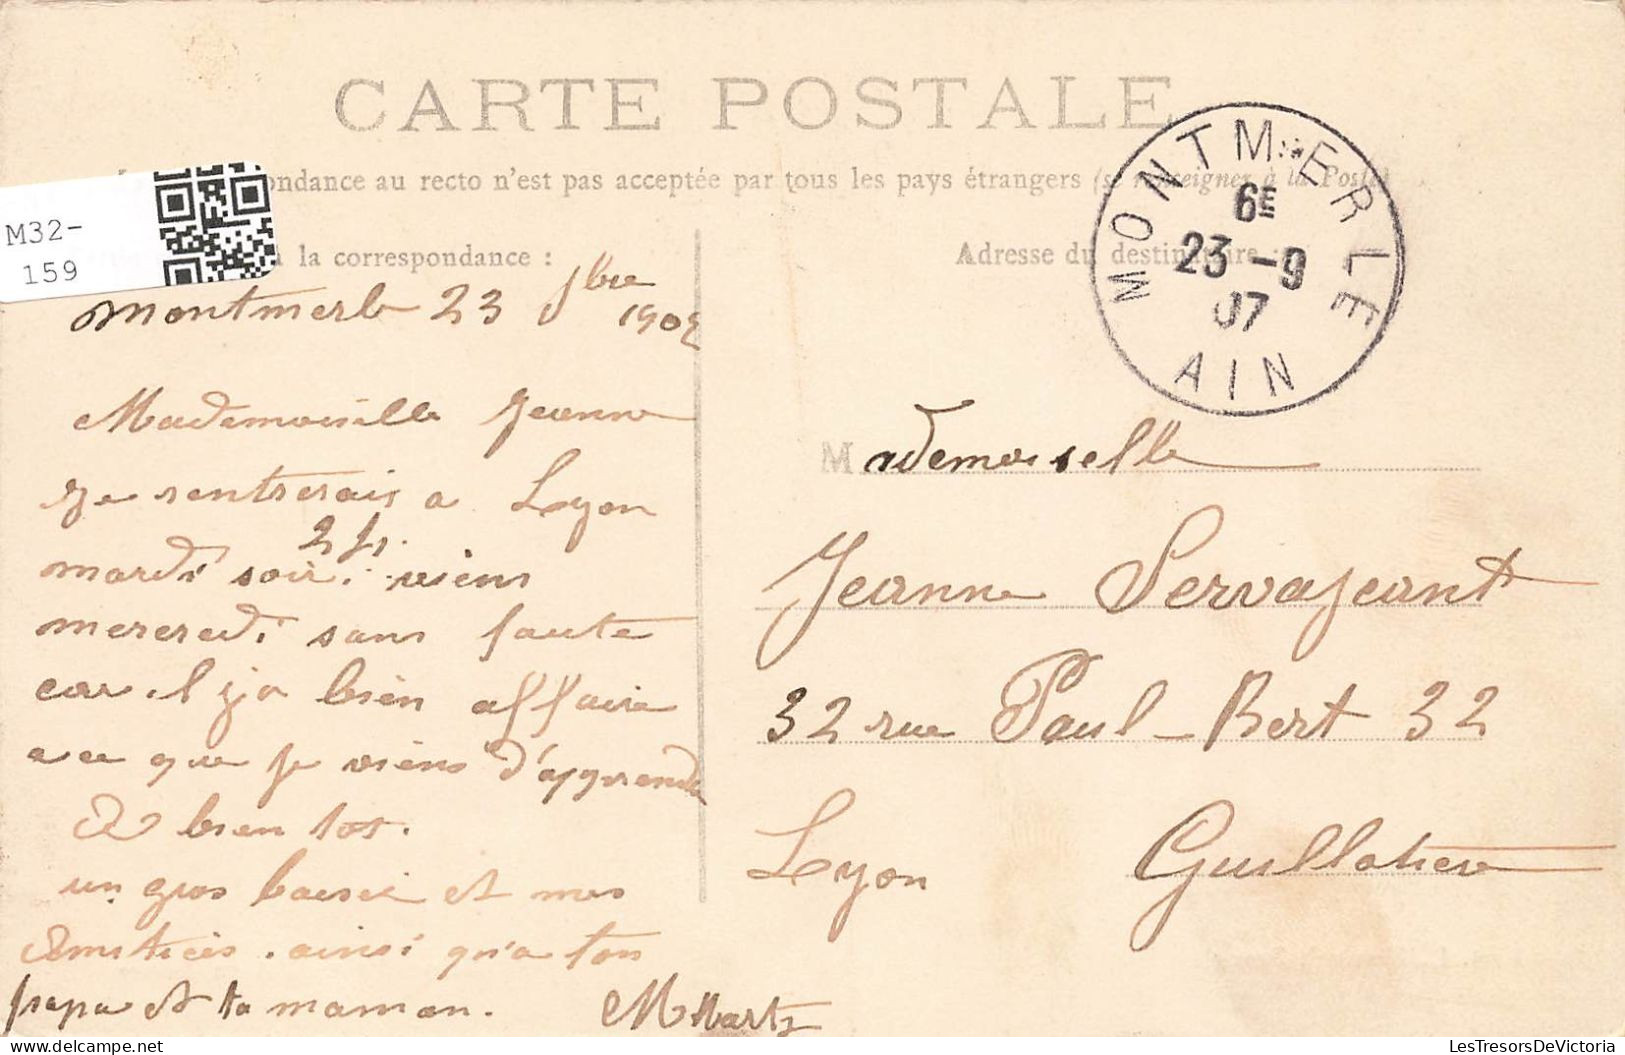 CARTE POSTALE
ondance au recto n'est pas acceptée par tous les pays étrangers (se renseigner à la Poste)
M32-
159
la correspondance :
Adresse du destinataire :
MONTMERLE
6E
23 -9
07
AIN
Montmerle 23 7bre
1907
Mademoiselle Jeanne
Je rentrerais a Lyon
mardi soir. viens
mercredi sans faute
car il y a bien affaire
a ce que je viens d'apprendre
A bien tot.
un gros baiser et mes
Amitiés. ainsi qu'a ton
papa et ta maman.
Mademoiselle
Jeanne Servageant
32 rue Paul-Bert 32
Lyon Guillotiere
LesTresorsDeVictoria